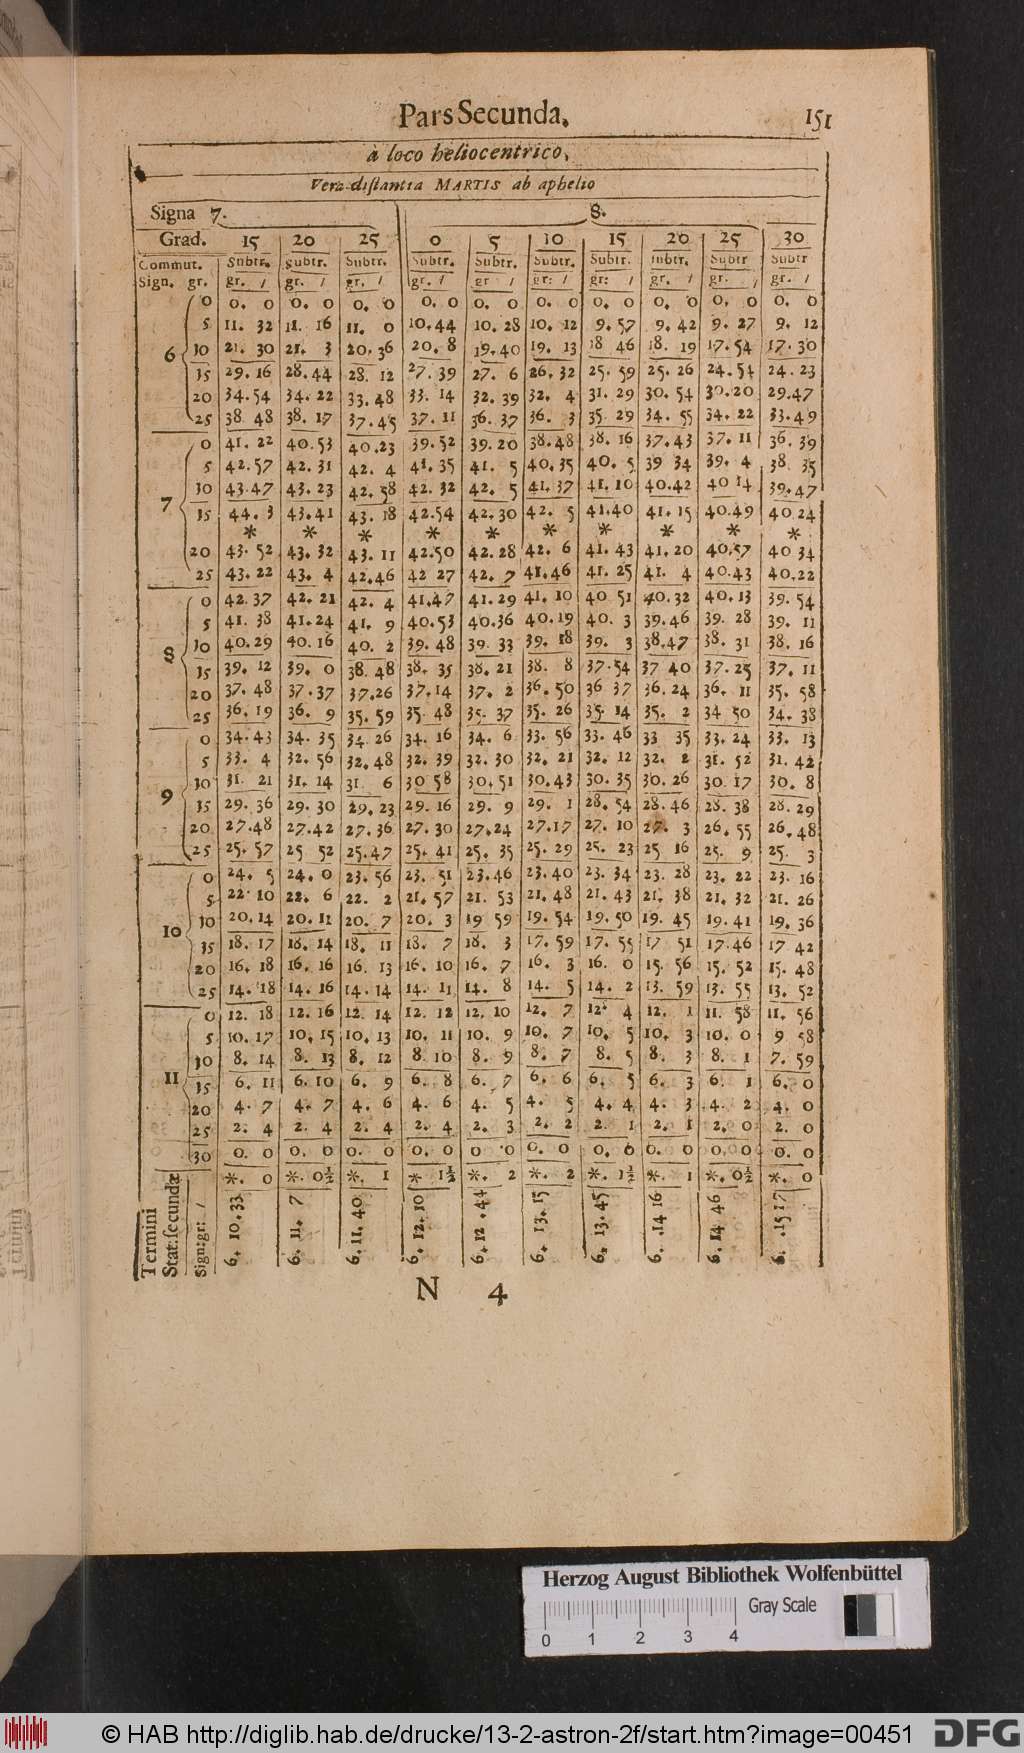 Pars Secunda. 151
à loco heliocentrico,
Vera distantia MARTIS ab aphelio
Signa 7. 8.
Grad. 15 20 25 0 5 10 15 20 25 30
Commut. Subtr. Subtr. Subtr. Subtr. Subtr. Subtr. Subtr. Subtr. Subtr Subtr
Sign. gr. gr. / gr. / gr. / gr. / gr / gr: / gr: / gr. / gr. / gr. /
6 0 0. 0 0. 0 0. 0 0. 0 0. 0 0. 0 0. 0 0. 0 0. 0 0. 0
5 11. 32 11. 16 11. 0 10.44 10. 28 10. 12 9. 57 9. 42 9. 27 9. 12
10 21. 30 21. 3 20.36 20. 8 19.40 19. 13 18 46 18. 19 17.54 17.30
15 29.16 28.44 28. 12 27. 39 27. 6 26.32 25. 59 25. 26 24.54 24.23
20 34.54 34. 22 33.48 33. 14 32. 39 32. 4 31. 29 30. 54 30.20 29.47
25 38 48 38. 17 37.45 37. 11 36. 37 36. 3 35 29 34. 55 34. 22 33.49
7 0 41. 22 40.53 40.23 39.52 39.20 38.48 38. 16 37.43 37. 11 36. 39
5 42.57 42. 31 42. 4 41. 35 41. 5 40.35 40. 5 39 34 39. 4 38 35
10 43.47 43. 23 42. 58 42. 32 42. 5 41. 37 41. 10 40.42 40 14 39.47
15 44. 3 43.41 43. 18 42.54 42.30 42. 5 41.40 41. 15 40.49 40 24
* * * * * * * * * *
20 43. 52 43. 32 43. 11 42.50 42. 28 42. 6 41. 43 41. 20 40.57 40 34
25 43. 22 43. 4 42.46 42 27 42. 7 41.46 41. 25 41. 4 40.43 40.22
8 0 42.37 42. 21 42. 4 41.47 41. 29 41. 10 40 51 40.32 40.13 39. 54
5 41. 38 41.24 41. 9 40.53 40.36 40.19 40. 3 39.46 39. 28 39. 11
10 40.29 40.16 40. 2 39. 48 39. 33 39. 18 39. 3 38.47 38. 31 38. 16
15 39. 12 39. 0 38. 48 38. 35 38. 21 38. 8 37.54 37 40 37.25 37. 11
20 37. 48 37.37 37.26 37.14 37. 2 36.50 36 37 36.24 36. 11 35. 58
25 36. 19 36. 9 35. 59 35. 48 35. 37 35. 26 35. 14 35. 2 34 50 34. 38
9 0 34.43 34. 35 34 26 34. 16 34. 6 33. 56 33. 46 33 35 33. 24 33. 13
5 33. 4 32. 56 32.48 32. 39 32. 30 32. 21 32. 12 32. 2 31. 52 31. 42
10 31. 21 31. 14 31. 6 30 58 30.51 30.43 30. 35 30. 26 30 17 30. 8
15 29. 36 29. 30 29. 23 29. 16 29. 9 29. 1 28. 54 28.46 28. 38 28. 29
20 27.48 27.42 27. 36 27. 30 27.24 27.17 27. 10 27. 3 26. 55 26.48
25 25. 57 25 52 25.47 25. 41 25. 35 25. 29 25. 23 25 16 25. 9 25. 3
10 0 24. 5 24. 0 23. 56 23. 51 23.46 23.40 23. 34 23. 28 23. 22 23. 16
5 22. 10 22. 6 22. 2 21. 57 21. 53 21.48 21. 43 21. 38 21. 32 21. 26
10 20.14 20.11 20. 7 20. 3 19 59 19. 54 19.50 19. 45 19.41 19. 36
15 18. 17 18. 14 18. 11 18. 7 18. 3 17. 59 17. 55 17 51 17.46 17 42
20 16. 18 16. 16 16. 13 16. 10 16. 7 16. 3 16. 0 15. 56 15. 52 15. 48
25 14. 18 14. 16 14. 14 14. 11 14. 8 14. 5 14. 2 13. 59 13. 55 13. 52
11 0 12. 18 12. 16 12. 14 12. 12 12. 10 12. 7 12. 4 12. 1 11. 58 11. 56
5 10. 17 10. 15 10. 13 10. 11 10. 9 10. 7 10. 5 10. 3 10. 0 9 58
10 8. 14 8. 13 8. 12 8 10 8. 9 8. 7 8. 5 8. 3 8. 1 7. 59
15 6. 11 6. 10 6. 9 6. 8 6. 7 6. 6 6. 5 6. 3 6. 1 6. 0
20 4. 7 4. 7 4. 6 4. 6 4. 5 4. 5 4. 4 4. 3 4. 2 4. 0
25 2. 4 2. 4 2. 4 2. 4 2. 3 2. 2 2. 1 2. 1 2. 0 2. 0
30 0. 0 0. 0 0. 0 0. 0 0 0 0. 0 0. 0 0. 0 0.0 0. 0
*. 0 *. 0½ *. 1 * 1½ *. 2 *. 2 *. 1½ *. 1 *. 0½ *. 0
Termini
Stat: secundæ
Sign:gr: / 6. 10.33 6. 11. 7 6. 11. 40 6. 12. 10 6. 12 .44 6. 13. 15 6. 13.45 6. .14 16 6. 14 46 6. .15 17
N 4
Herzog August Bibliothek Wolfenbüttel
Gray Scale
0 1 2 3 4
© HAB http://diglib.hab.de/drucke/13-2-astron-2f/start.htm?image=00451 DFG